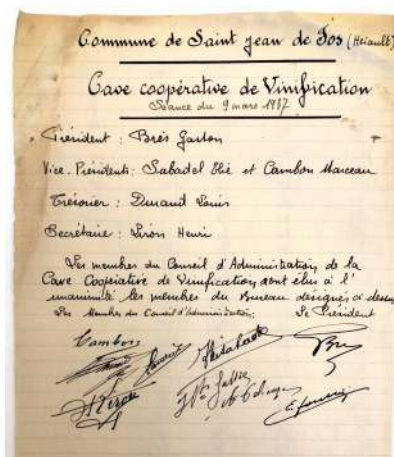 Commune de Saint Jean de Fos (Hérault)
Cave coopérative de Vinification
Séance du 9 mars 1937
Président : Brès Gaston
Vice-Présidents : Sabadel Elie et Cambon Marceau
Trésorier : Durand Louis
Secrétaire : Liron Henri
Les membres du Conseil d'Administration de la
Cave Coopérative de Vinification ont élus à l'
unanimité les membres du Bureau désignés ci dessus
Les Membres du Conseil d'Administration: Le Président
Cambon